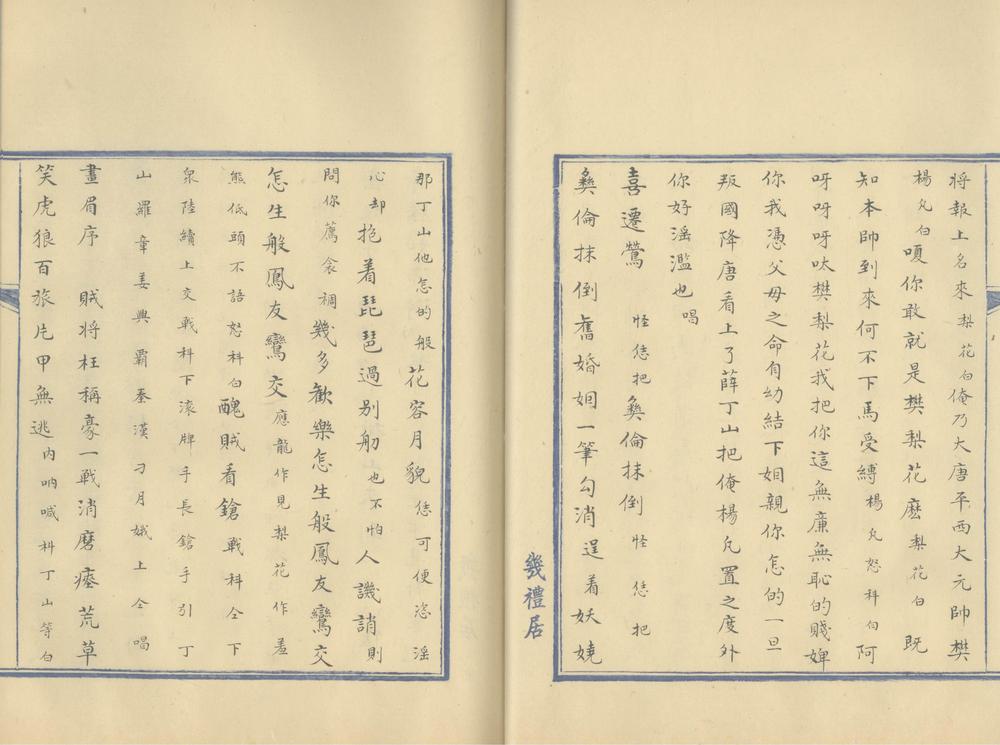 将報上名來梨花白俺乃大唐平西大元帥樊
楊凡白嗄你敢就是樊梨花麽梨花白既
知本帥到來何不下馬受縛楊凡怒科白阿
呀呀呀呔樊梨花我把你這無廉無恥的賤婢
你我憑父母之命自幼結下姻親你怎的一旦
叛國降唐看上了薛丁山把俺楊凡置之度外
你好滛濫也唱
喜遷鶯 怪恁把彝倫抹倒怪恁把
彝倫抹倒舊婚姻一筆勾消逞着妖嬈
幾禮居
那丁山他怎的般花容月貌恁可便恣滛
心却抱着琵琶過别舠也不怕人譏誚則
問你薦衾裯幾多歡樂怎生般鳳友鸞交
怎生般鳳友鸞交應龍作見梨花作羞
熊低頭不語怒科白醜賊看鎗戰科仝下
衆陸續上交戰科下滚牌手長鎗手引丁
山羅章姜興霸秦漢刁月娥上仝唱
畫眉序 賊将枉稱豪一戰消磨瘞荒草
笑虎狼百旅片甲無逃内吶喊科丁山等白